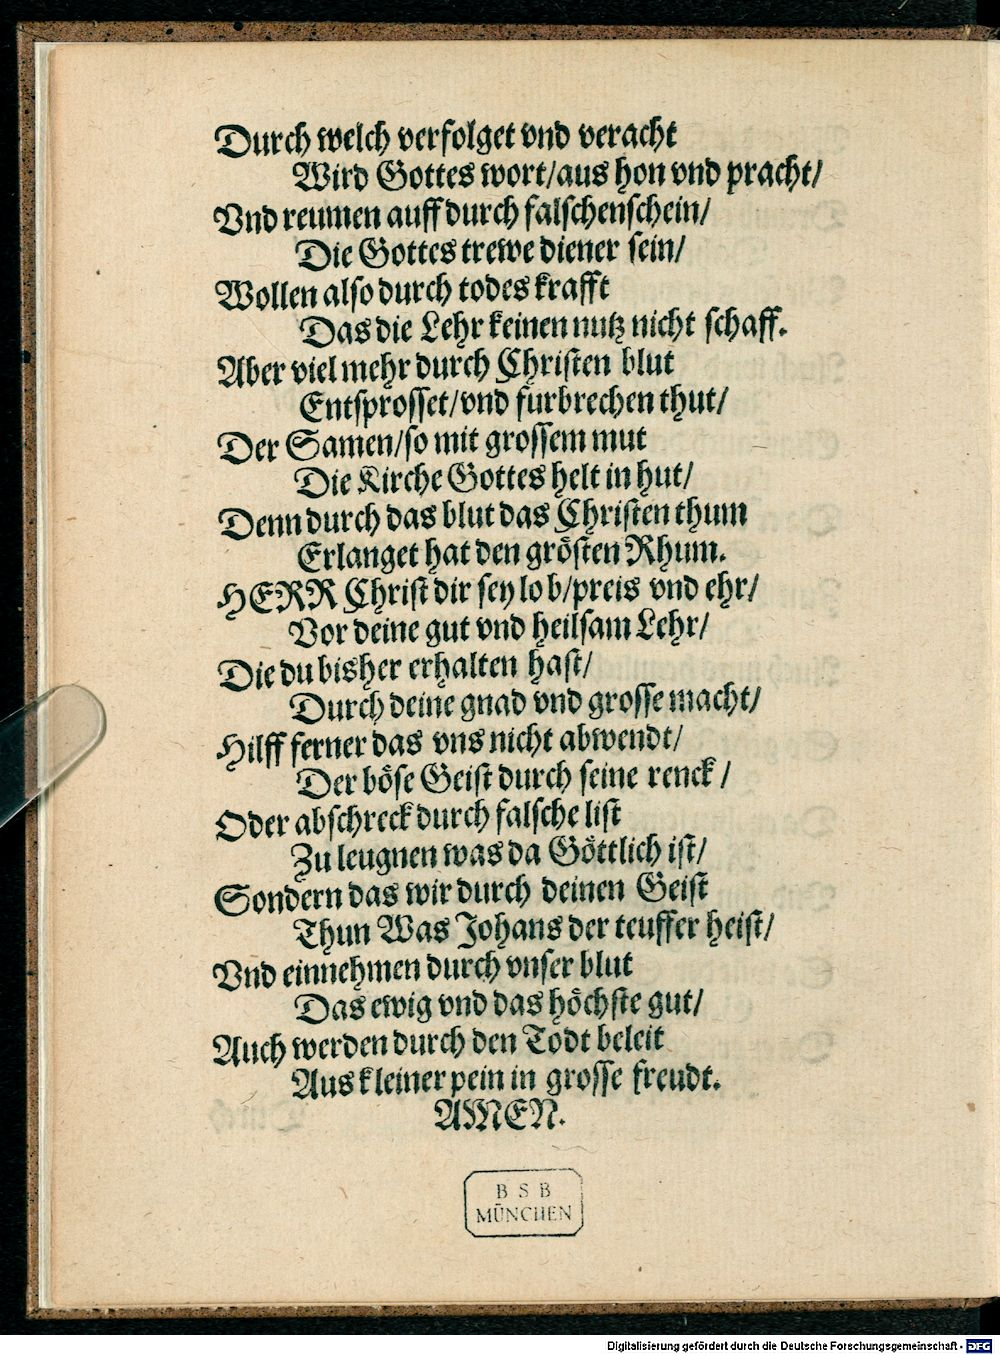 Durch welch verfolget vnd veracht
Wird Gottes wort/aus hon vnd pracht/
Vnd reumen auff durch falschenschein/
Die Gottes trewe diener sein/
Wollen also durch todes krafft
Das die Lehr keinen nutz nicht schaff.
Aber viel mehr durch Christen blut
Entsprosset/vnd furbrechen thut/
Der Samen/so mit grossem mut
Die Kirche Gottes helt in hut/
Denn durch das blut das Christen thum
Erlanget hat den grösten Rhum.
HERR Christ dir sey lob/preis vnd ehr/
Vor deine gut vnd heilsam Lehr/
Die du bisher erhalten hast/
Durch deine gnad vnd grosse macht/
Hilff ferner das vns nicht abwendt/
Der böse Geist durch seine renck/
Oder abschreck durch falsche list
Zu leugnen was da Göttlich ist/
Sondern das wir durch deinen Geist
Thun Was Johans der teuffer heist/
Vnd einnehmen durch vnser blut
Das ewig vnd das höchste gut/
Auch werden durch den Todt beleit
Aus kleiner pein in grosse freudt.
AMEN.
BSB
MÜNCHEN
Digitalisierung gefördert durch die Deutsche Forschungsgemeinschaft - DFG